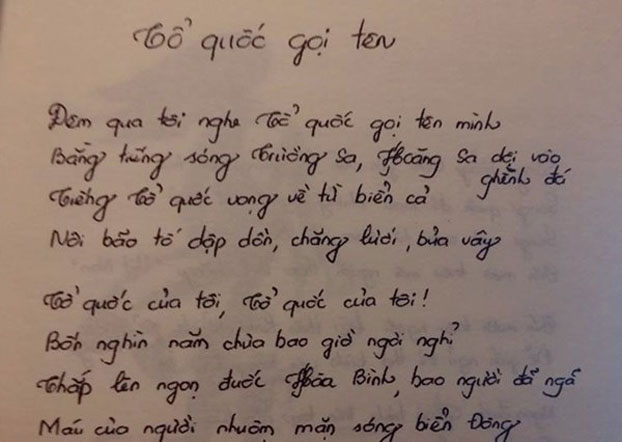 Tổ quốc gọi tên
Đêm qua tôi nghe Tổ quốc gọi tên mình
Bằng tiếng sóng Trường Sa, Hoàng Sa dội vào
ghềnh đá
Tiếng Tổ quốc vọng về từ biển cả
Nơi bão tố dập dồn, chăng lưới, bủa vây
Tổ quốc của tôi, Tổ quốc của tôi!
Bốn nghìn năm chưa bao giờ ngơi nghỉ
Thắp lên ngọn đuốc Hòa Bình, bao người đã ngã
Máu của người nhuộm mặn sóng biển Đông